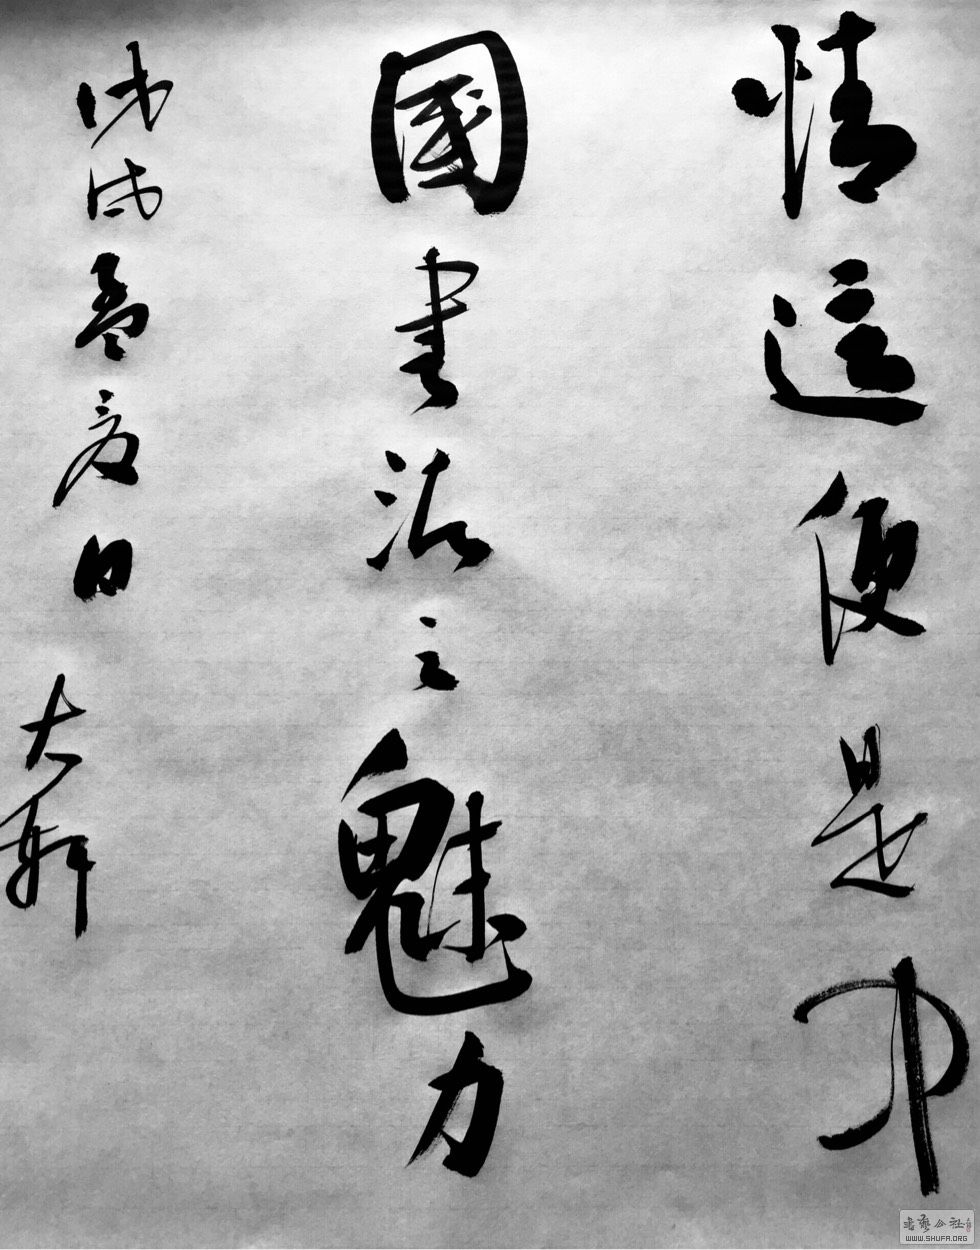 情這便是中
國書法之魅力
戊戌孟夏日 大軒
書藝公社
WWW.SHUFA.ORG